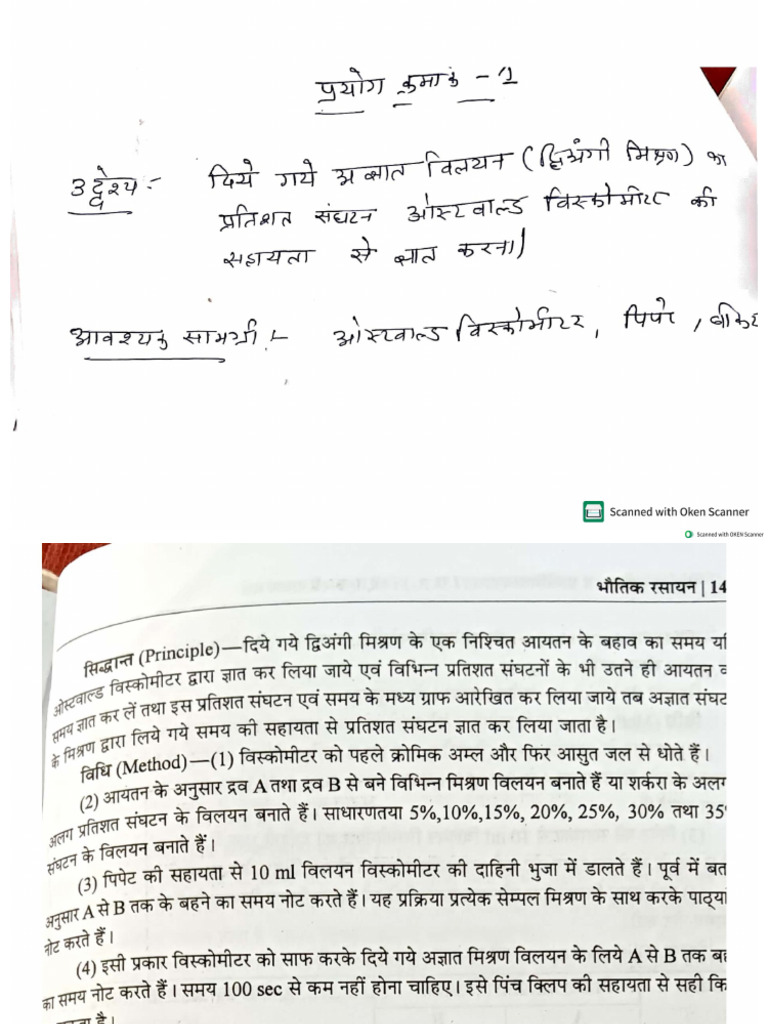 प्रयोग क्रमांक - 1
उद्देश्य :- दिये गये अज्ञात विलयन (द्विअंगी मिश्रण) का
प्रतिशत संघटन ओस्टवाल्ड विस्कोमीटर की
सहायता से ज्ञात करना।
आवश्यक सामग्री :- ओस्टवाल्ड विस्कोमीटर, पिपेट,
Scanned with Oken Scanner
Scanned with OKEN Scanner
भौतिक रसायन | 14
सिद्धान्त (Principle)—दिये गये द्विअंगी मिश्रण के एक निश्चित आयतन के बहाव का समय
ओस्टवाल्ड विस्कोमीटर द्वारा ज्ञात कर लिया जाये एवं विभिन्न प्रतिशत संघटनों के भी उतने ही आयतन
समय ज्ञात कर लें तथा इस प्रतिशत संघटन एवं समय के मध्य ग्राफ आरेखित कर लिया जाये तब अज्ञात संघट
के मिश्रण द्वारा लिये गये समय की सहायता से प्रतिशत संघटन ज्ञात कर लिया जाता है।
विधि (Method)—(1) विस्कोमीटर को पहले क्रोमिक अम्ल और फिर आसुत जल से धोते हैं।
(2) आयतन के अनुसार द्रव A तथा द्रव B से बने विभिन्न मिश्रण विलयन बनाते हैं या शर्करा के अलग
अलग प्रतिशत संघटन के विलयन बनाते हैं। साधारणतया 5%,10%,15%, 20%, 25%, 30% तथा 35
संघटन के विलयन बनाते हैं।
(3) पिपेट की सहायता से 10 ml विलयन विस्कोमीटर की दाहिनी भुजा में डालते हैं। पूर्व में बत
अनुसार A से B तक के बहने का समय नोट करते हैं। यह प्रक्रिया प्रत्येक सेम्पल मिश्रण के साथ करके पाठ्यां
नोट करते हैं।
(4) इसी प्रकार विस्कोमीटर को साफ करके दिये गये अज्ञात मिश्रण विलयन के लिये A से B तक बह
का समय नोट करते हैं। समय 100 sec से कम नहीं होना चाहिए। इसे पिंच क्लिप की सहायता से सही कि